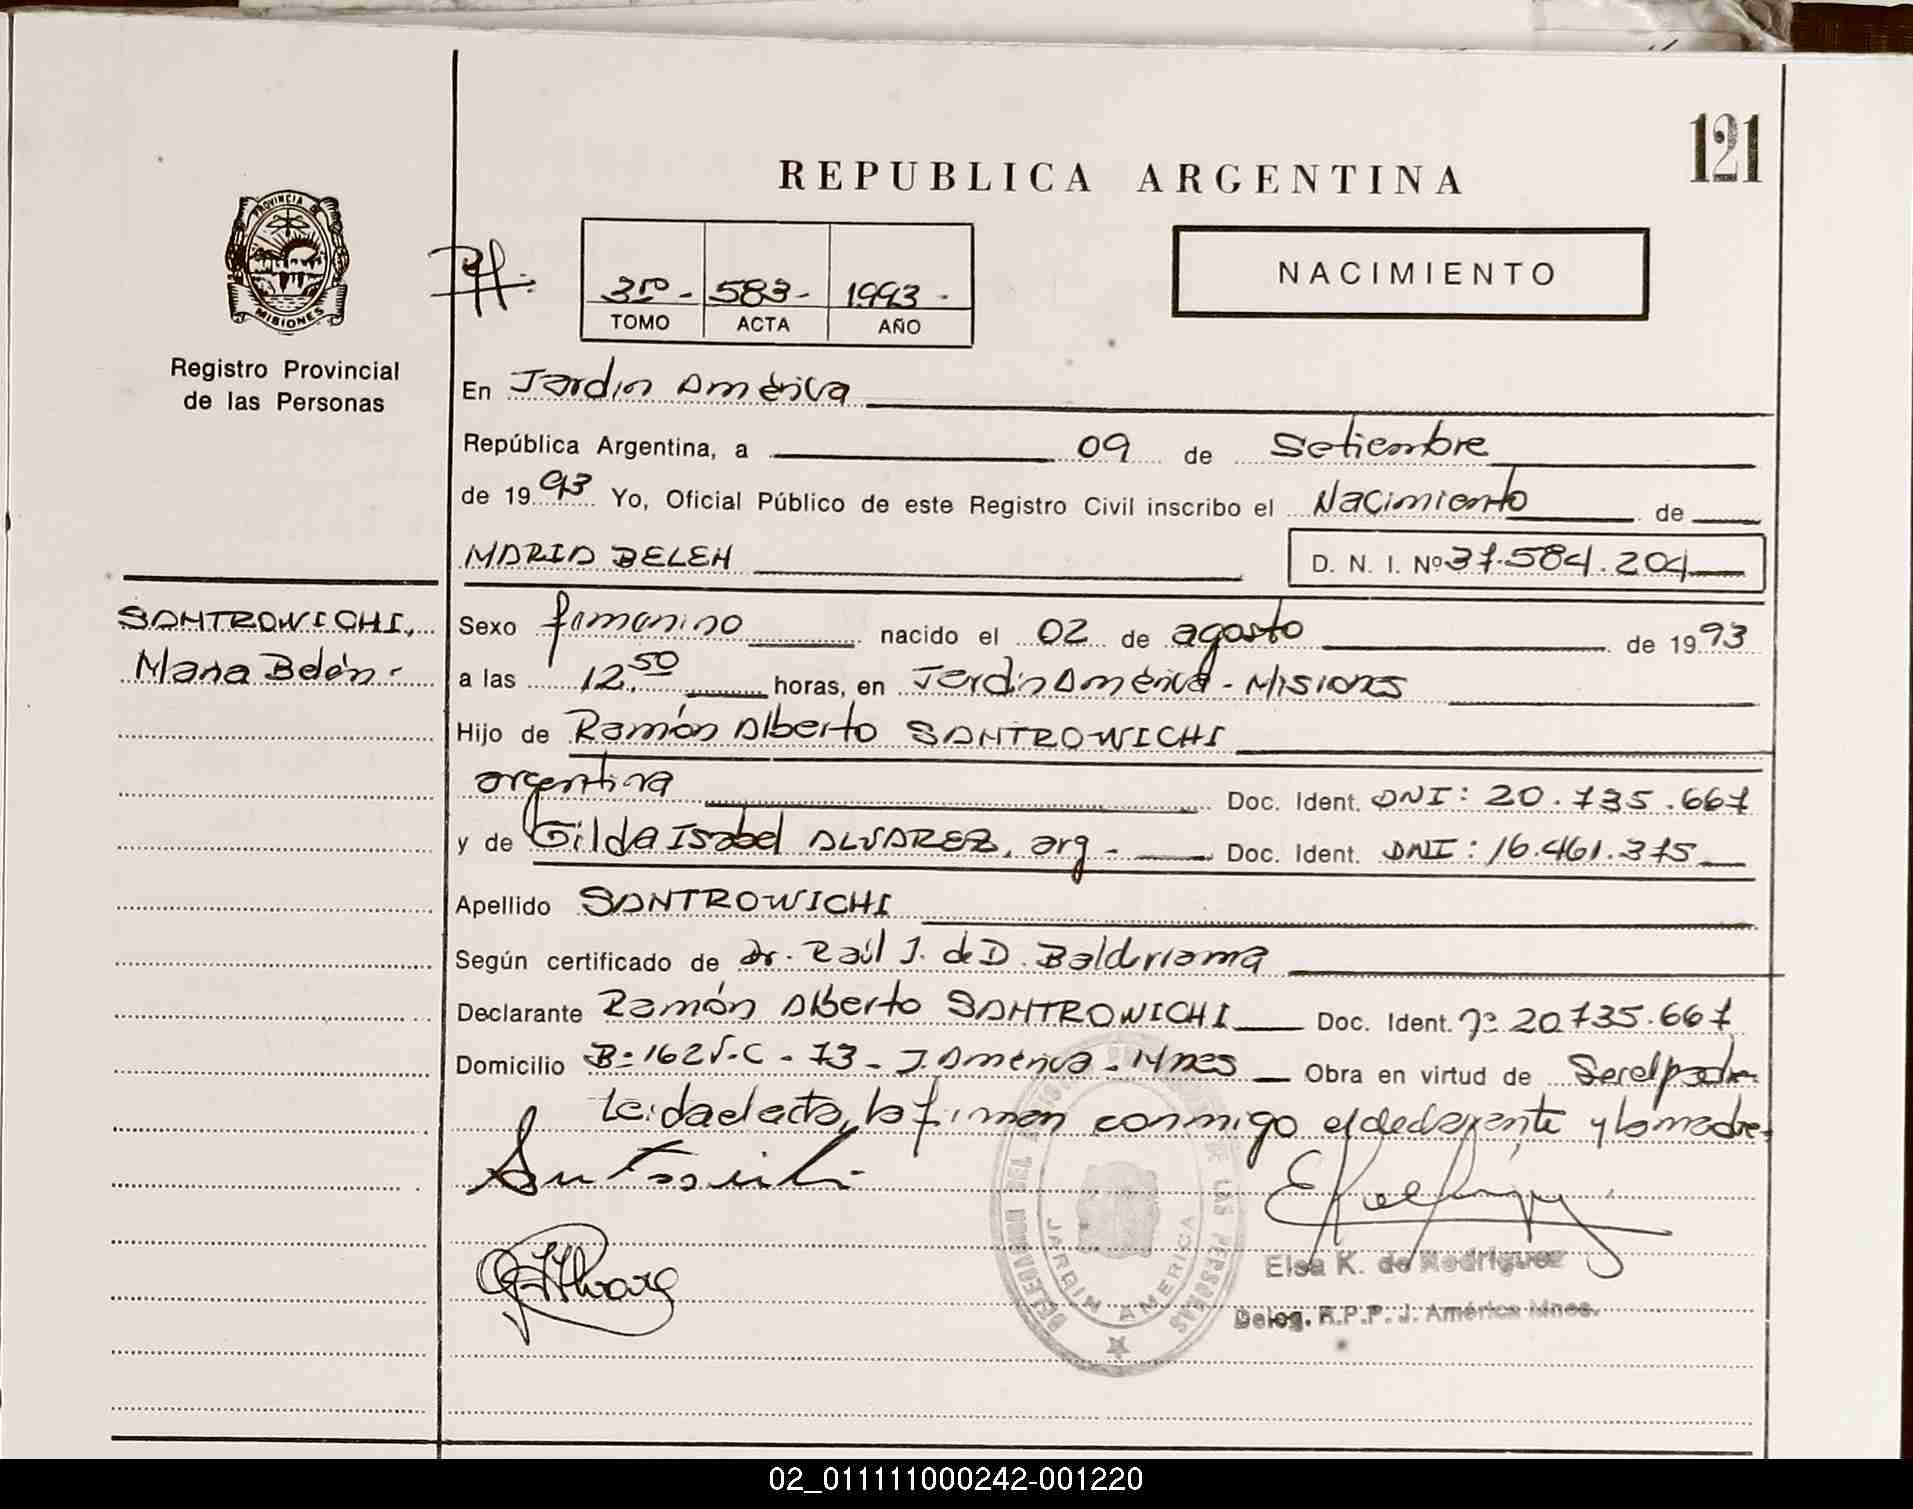 121
REPUBLICA ARGENTINA
PROVINCIA DE
MISIONES
Registro Provincial
de las Personas
3ro - 583 - 1993 -
TOMO ACTA AÑO
NACIMIENTO
En Jardín América
República Argentina, a 09 de Setiembre
de 1993 Yo, Oficial Público de este Registro Civil inscribo el Nacimiento de
MARIA BELEN D. N. I. Nº 37.584.204
SANTROWICHI,
Maria Belén.-
Sexo femenino nacido el 02 de agosto de 1993
a las 12,50 horas, en Jardín América - Misiones
Hijo de Ramón Alberto SANTROWICHI
argentina Doc. Ident. DNI: 20.735.667
y de Gilda Isabel ALVAREZ, arg- Doc. Ident. DNI: 16.461.375
Apellido SANTROWICHI
Según certificado de Dr. Raúl J. de D.
Declarante Ramón Alberto SANTROWICHI Doc. Ident. nº 20 735.667
Domicilio Bº 162 V.-C - 73 - J. América - Mnes Obra en virtud de Ser el padre
Leida el acta, la firman conmigo el declarante y la madre.
DE LAS PERSONAS
JARDIN AMERICA
Elsa K. de Rodriguez
Deleg. R.P.P. J. América Mnes.
02_011111000242-001220